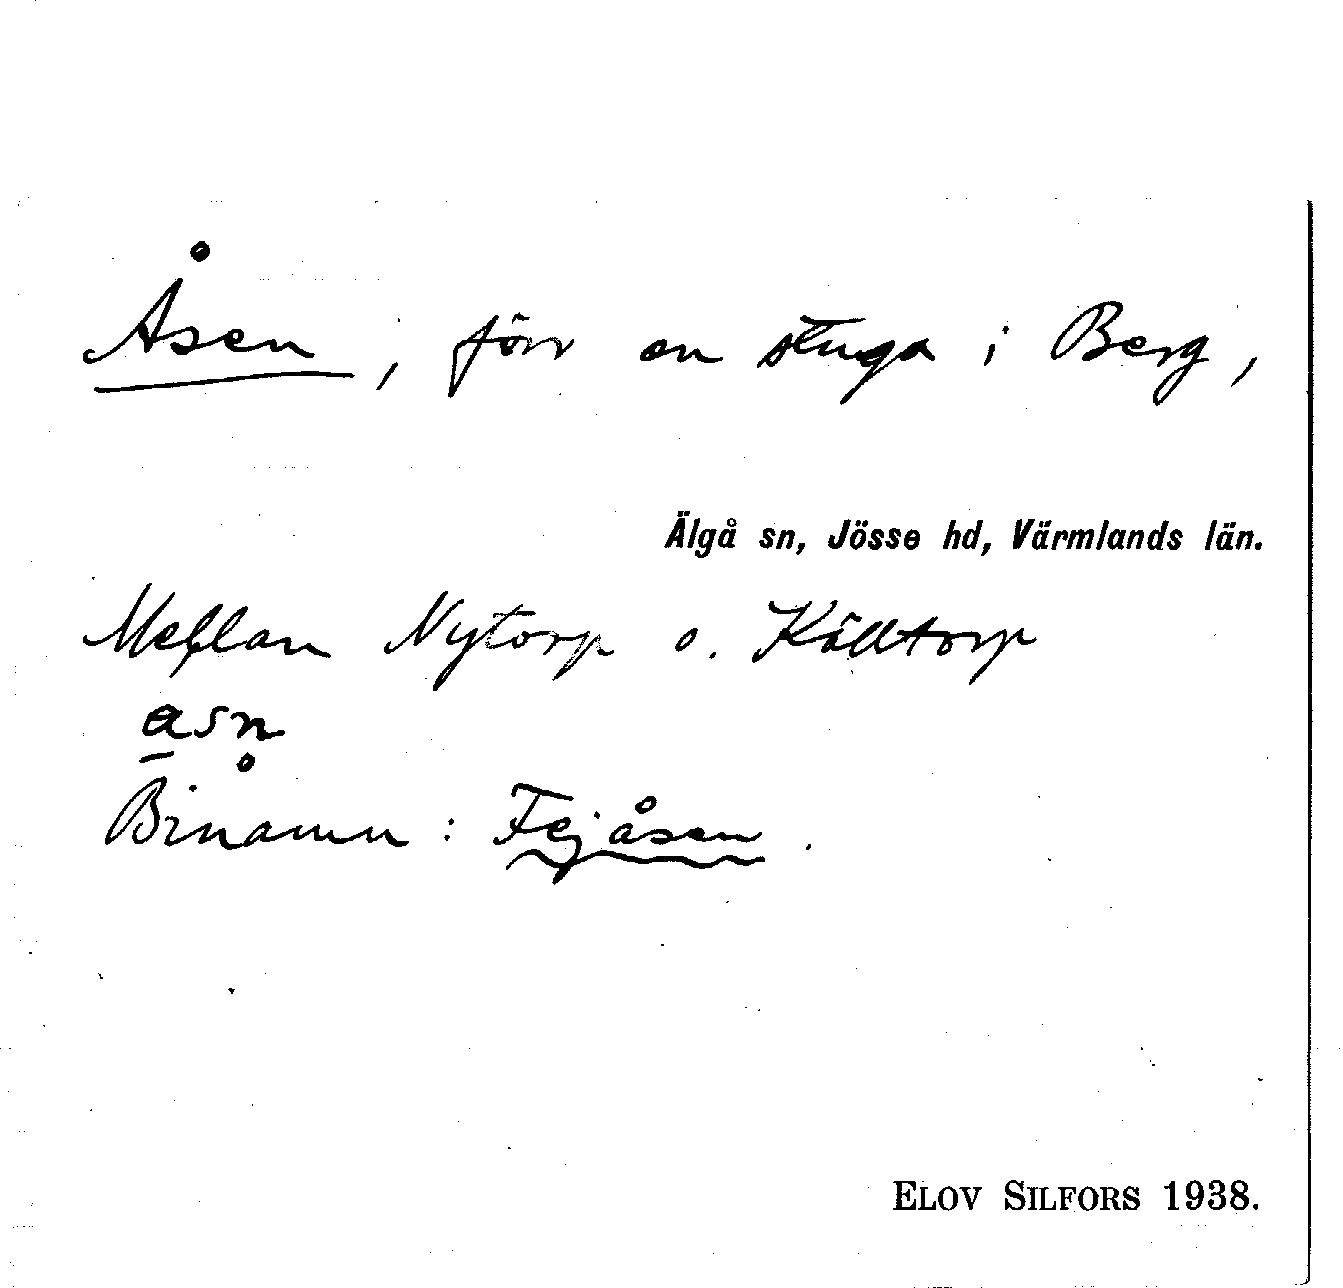 Åsen, förr en stuga i Berg,
Älgå sn, Jösse hd, Värmlands län.
Mellan Nytorp o. Källtorp
a̱sn̥
Binamn: Fejåsen.
ELOV SILFORS 1938.